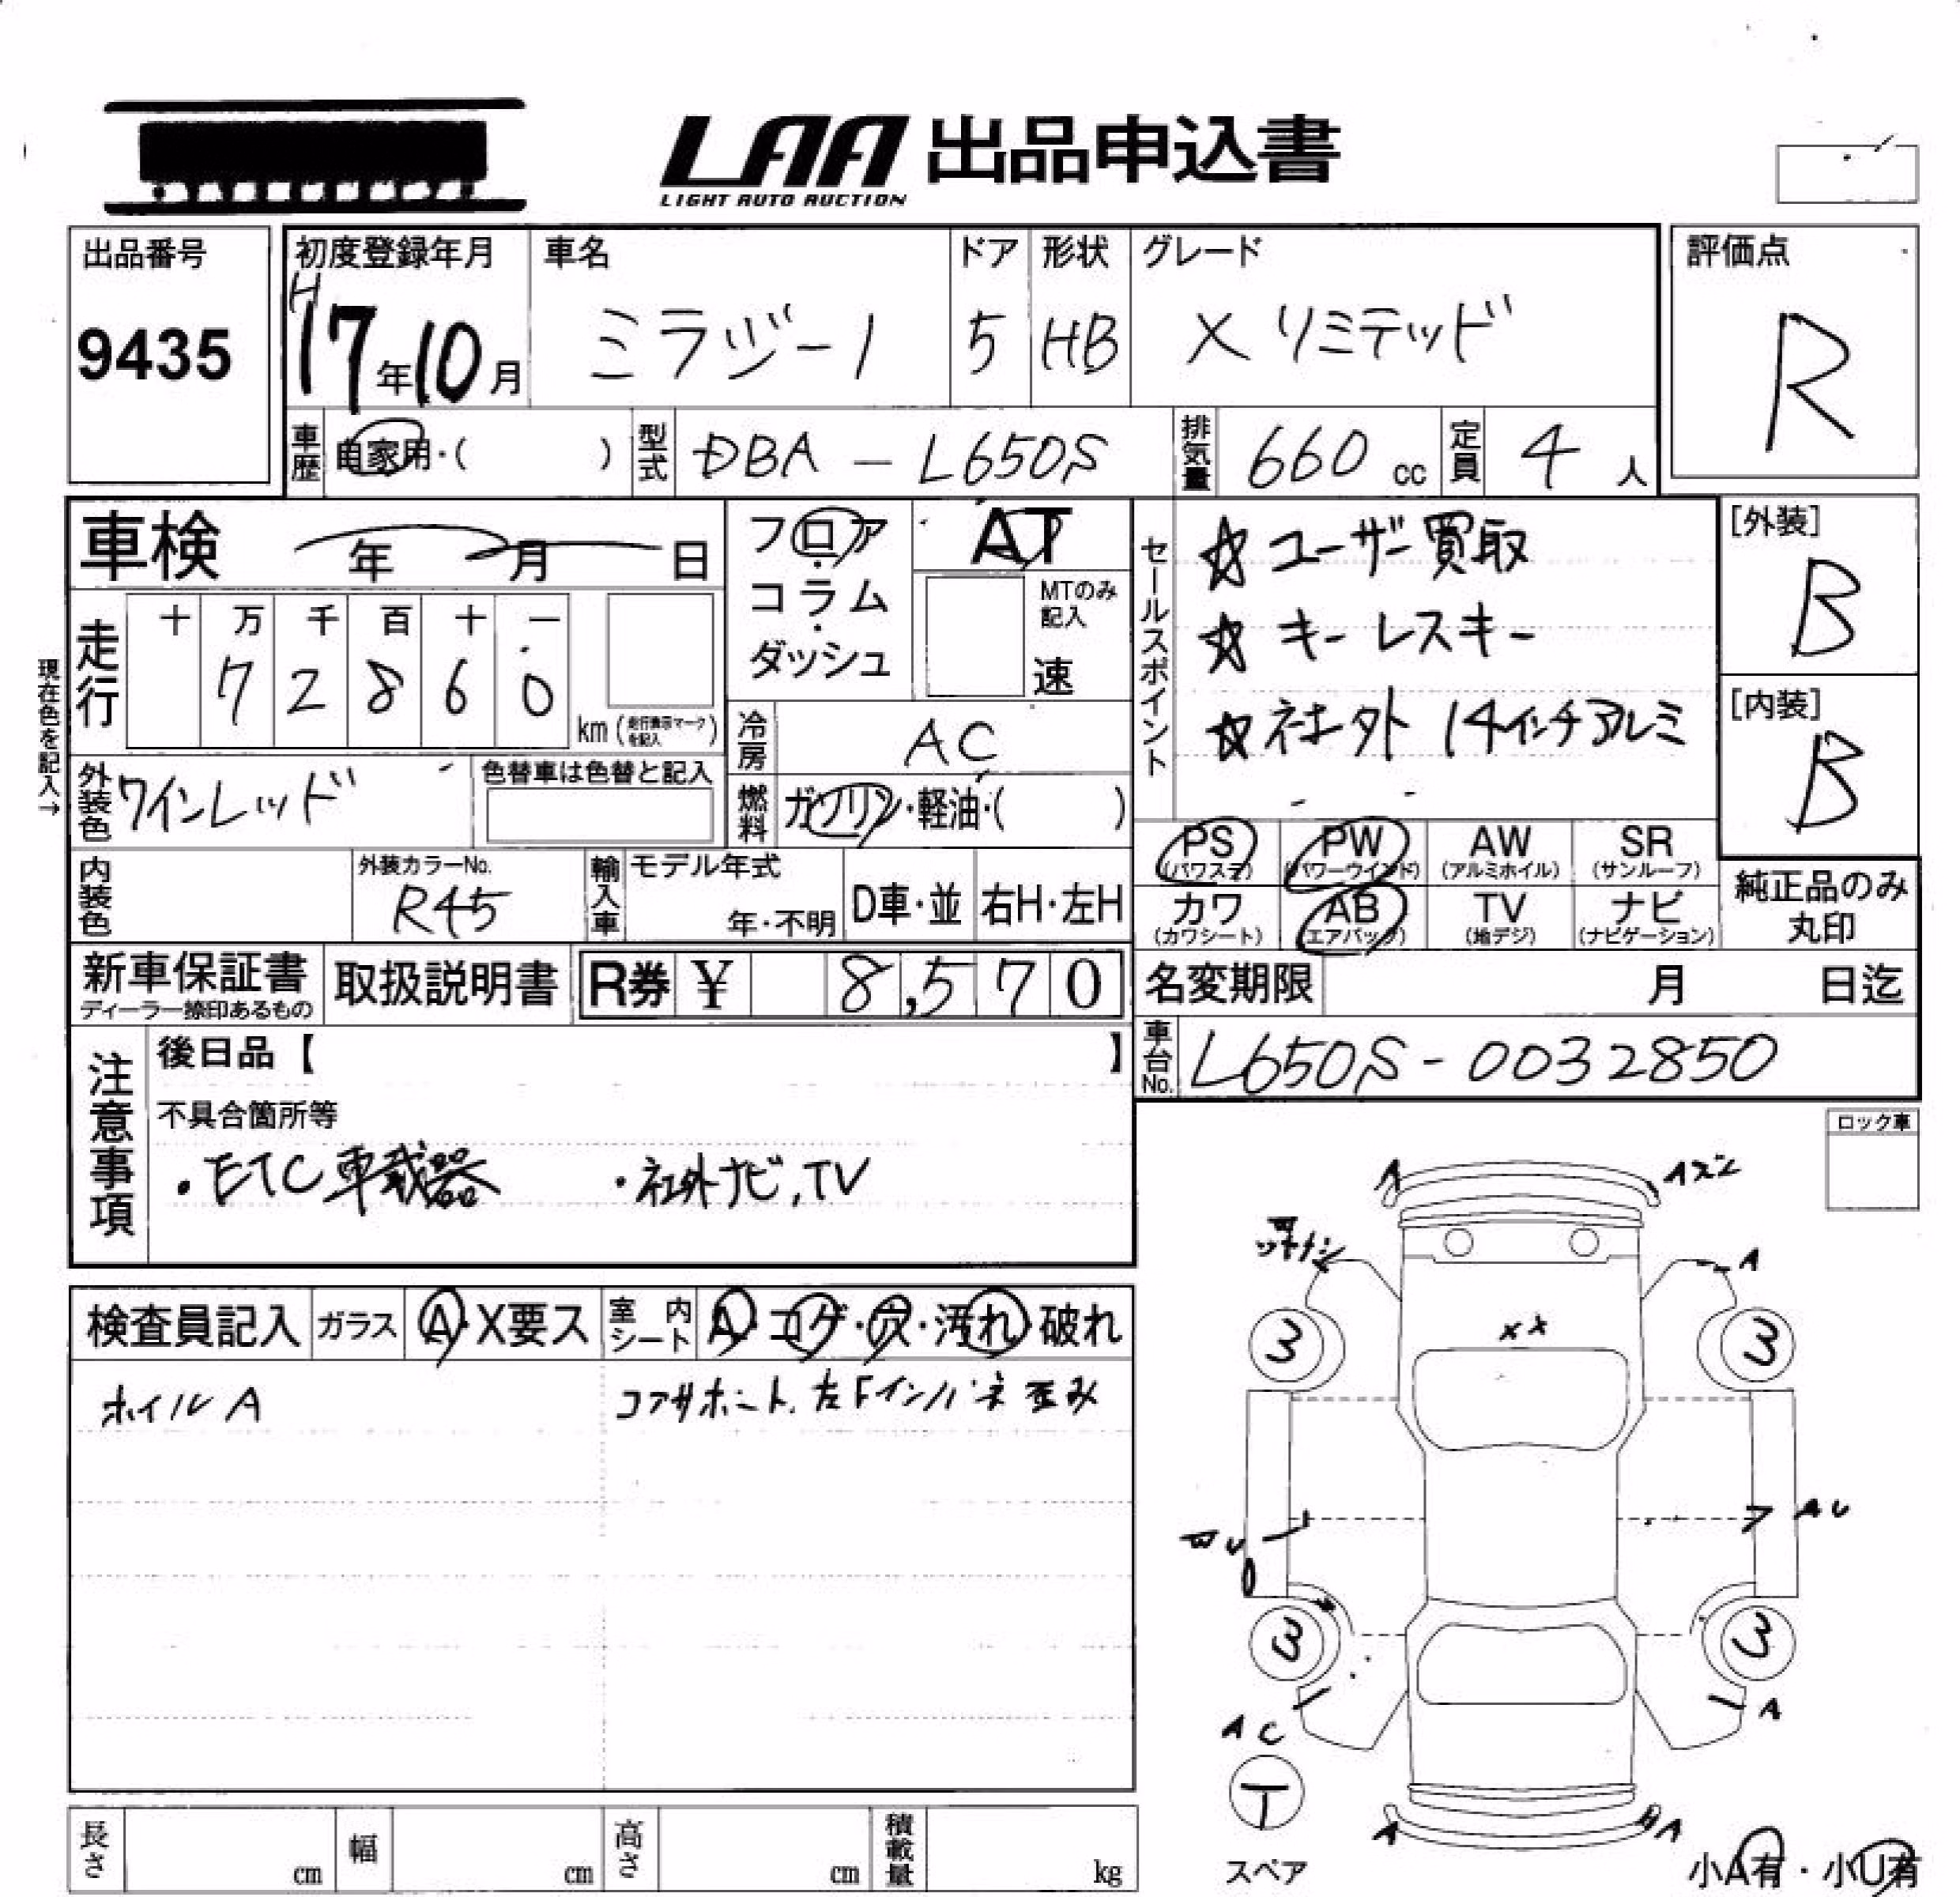 LAA 出品申込書
LIGHT AUTO AUCTION
出品番号
9435
初度登録年月
H17年10月
車名
ミラジーノ
ドア
5
形状
HB
グレード
X リミテッド
評価点
R
車歴 自家用・( )
型式 DBA - L650S
排気量 660 cc
定員 4 人
車検 年 月 日
現在色を記入→
走行
十 万 千 百 十 一
7 2 8 6 0
km (走行表示マークを記入)
フロア
・
コラム
・
ダッシュ
AT
MTのみ記入
速
セールスポイント
☆ ユーザー買取
☆ キーレスキー
☆ 社外 14インチアルミ
[外装]
B
[内装]
B
外装色 ワインレッド
色替車は色替と記入
冷房 AC
燃料 ガソリン・軽油・( )
内装色
外装カラーNo.
R45
輸入車
モデル年式
年・不明
D車・並
右H・左H
PS (パワステ)
PW (パワーウインド)
AW (アルミホイル)
SR (サンルーフ)
カワ (カワシート)
AB (エアバック)
TV (地デジ)
ナビ (ナビゲーション)
純正品のみ
丸印
新車保証書
ディーラー捺印あるもの
取扱説明書
R券 ¥ 8,570
名変期限 月 日迄
車台No. L650S-0032850
注意事項
後日品【 】
不具合箇所等
・ETC車載器 ・社外ナビ,TV
ロック車
検査員記入
ガラス A・X要ス
室内シート A・コゲ・穴・汚れ・破れ
ホイル A
コアサポート、左Fインパネ 歪み
A
A
A
X X
3
3
A U
3
3
A C
A
T
スペア
A
A
小A有・小U有
長さ cm
幅 cm
高さ cm
積載量 kg